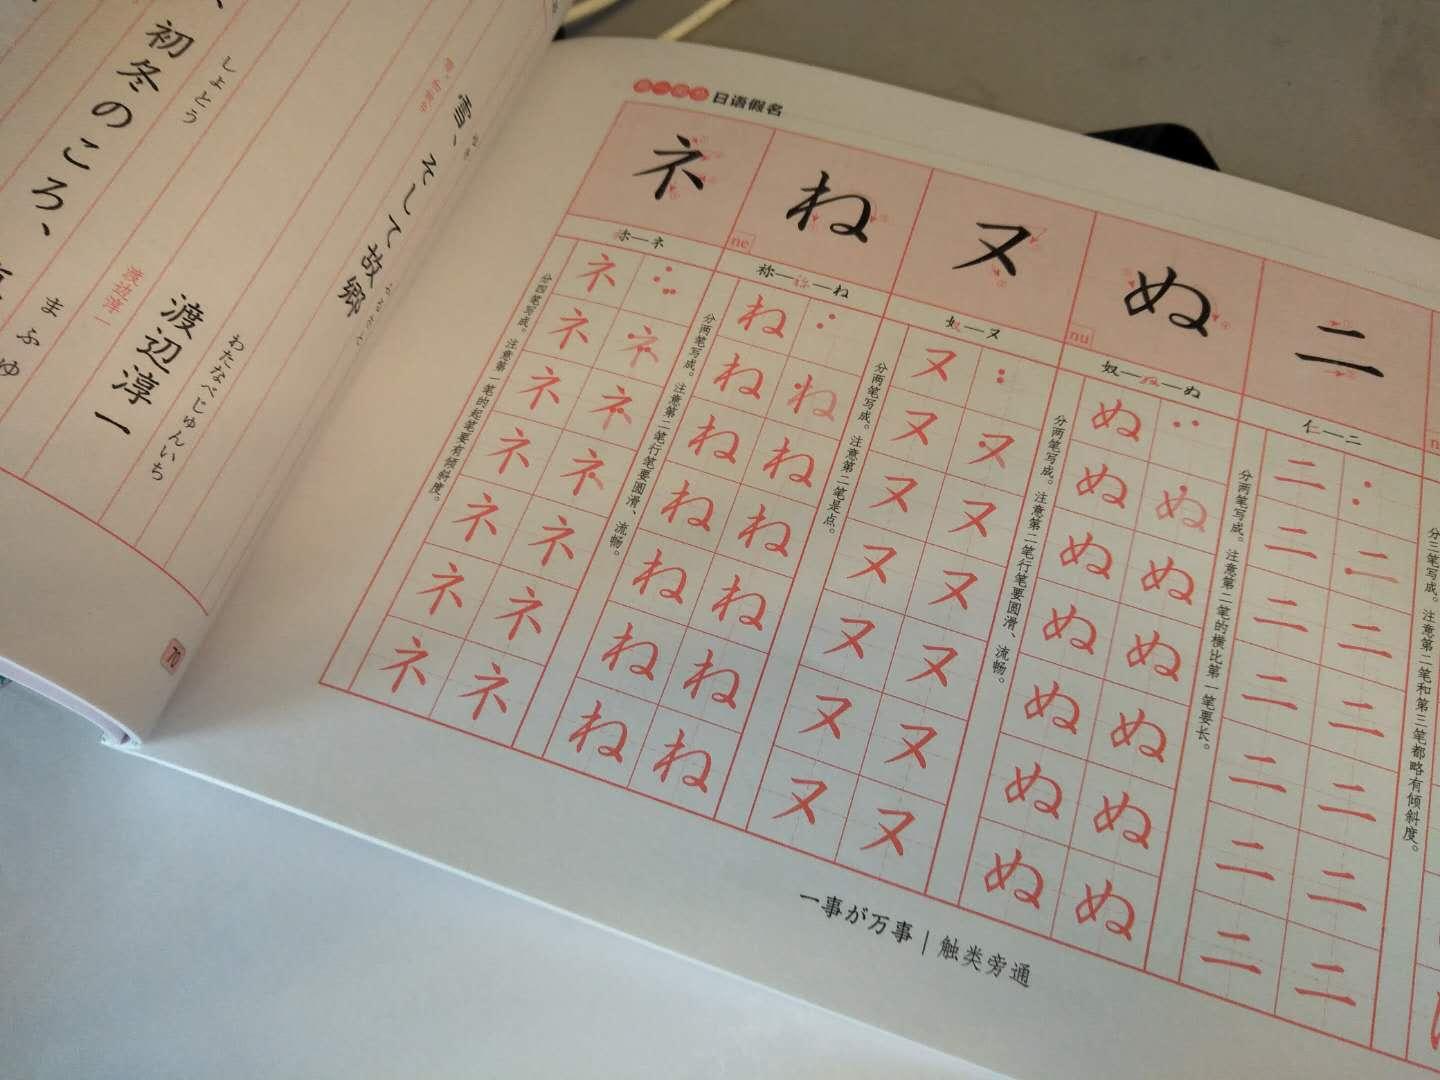 初冬のころ、
しょとう
まふゆ
雪、そして故郷
渡辺淳一
わたなべじゅんいち
渡边淳一
70
日语假名
ネ
ね
ne
ヌ
ぬ
nu
ニ
祢—ね
奴—ヌ
奴—ぬ
仁—ニ
分四笔写成。注意第一笔的起笔要有倾斜度。
ネ
ネ
ネ ネ
ネ ネ
ネ ネ
ネ ネ
ネ ネ
ネ ネ
分两笔写成。注意第二笔行笔要圆滑、流畅。
ね
ね ね
ね ね
ね ね
ね ね
ね ね
ね ね
分两笔写成。注意第二笔是点。
ヌ
ヌ ヌ
ヌ ヌ
ヌ ヌ
ヌ ヌ
ヌ ヌ
ヌ ヌ
分两笔写成。注意第二笔行笔要圆滑、流畅。
ぬ
ぬ ぬ
ぬ ぬ
ぬ ぬ
ぬ ぬ
ぬ ぬ
ぬ ぬ
分两笔写成。注意第二笔的横比第一笔要长。
ニ
ニ ニ
ニ ニ
ニ ニ
ニ ニ
ニ ニ
ニ ニ
分三笔写成。注意第二笔和第三笔都略有倾斜度。
一事が万事｜触类旁通